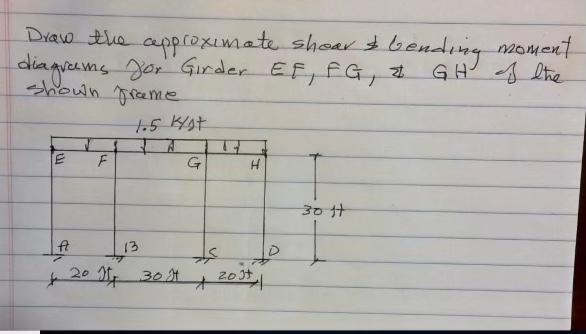 Draw the approximate shear & bending moment
diagrams for Girder EF, FG, & GH of the
shown frame
1.5 K/ft
E F G H
30 ft
A B C D
20 ft 30 ft 20 ft